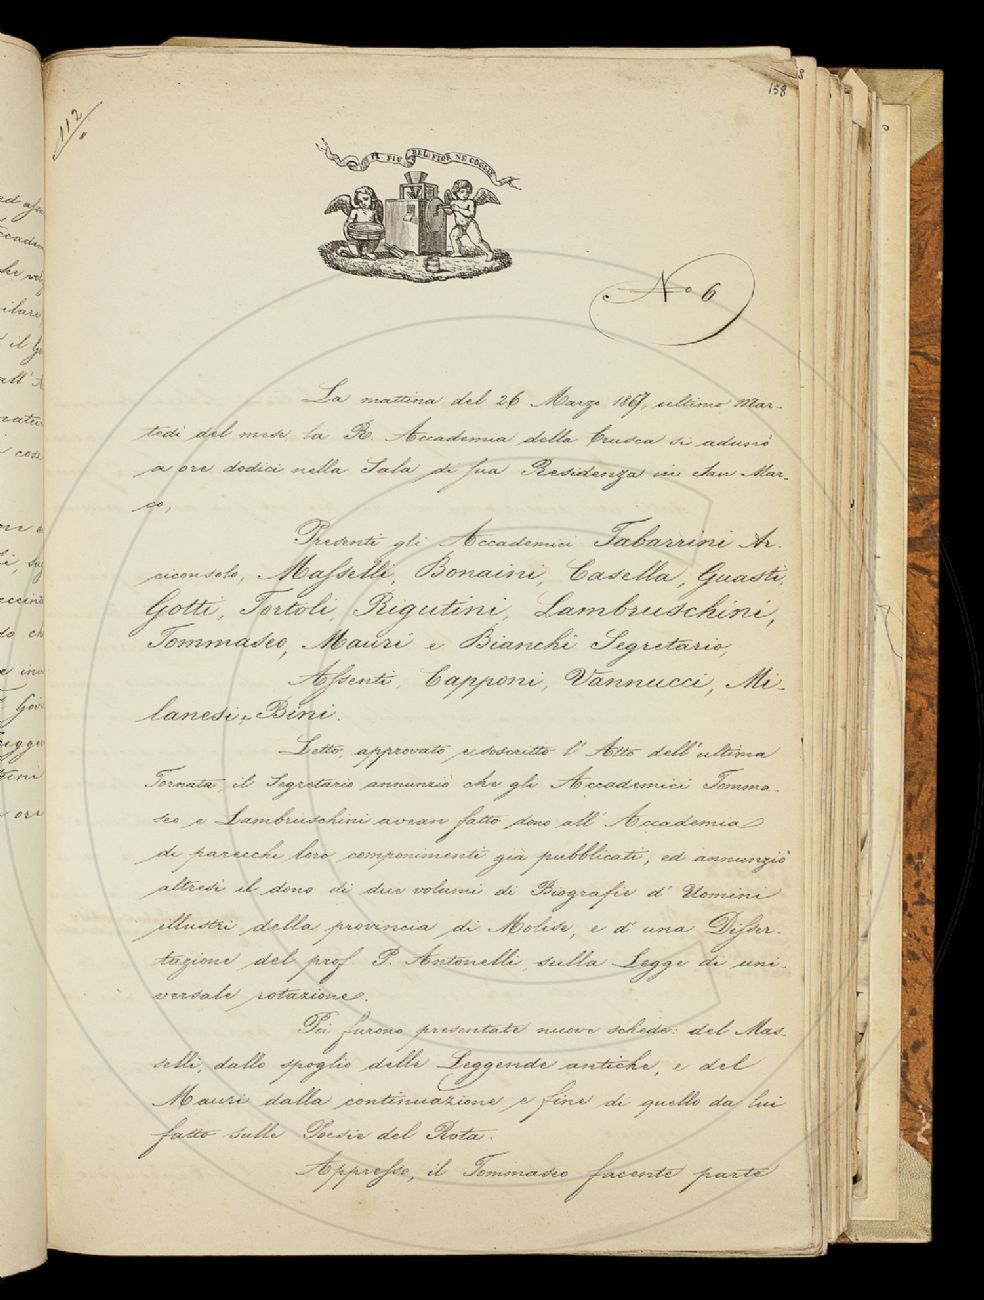 112
158
IL PIU BEL FIOR NE COGLIE
No 6
La mattina del 26 Marzo 1867, ultimo Mar-
tedì del mese la R. Accademia della Crusca si adunò
a ore dodici nella Sala di sua Residenza in San Mar-
co,
Presenti gli Accademici Tabarrini Ar-
ciconsolo, Masselli, Bonaini, Casella, Guasti,
Gotti, Tortoli, Rigutini, Lambruschini,
Tommaseo, Mauri e Bianchi Segretario,
Assenti, Capponi, Vannucci, Mi-
lanesi e Bini.
Letto, approvato e soscritto l' Atto dell' ultima
Tornata, il Segretario annunziò che gli Accademici Tomma-
seo e Lambruschini avean fatto dono all' Accademia
di parecchi loro componimenti già pubblicati; ed annunziò
altresì il dono di due volumi di Biografie d' Uomini
illustri della provincia di Molise, e d' una Disser-
tazione del prof. P. Antonelli, sulla Legge di uni-
versale rotazione.
Poi furono presentate nuove schede: del Mas-
selli, dallo spoglio delle Leggende antiche, e del
Mauri dalla continuazione e fine di quello da lui
fatto sulle Poesie del Rota.
Appresso, il Tommaseo facente parte